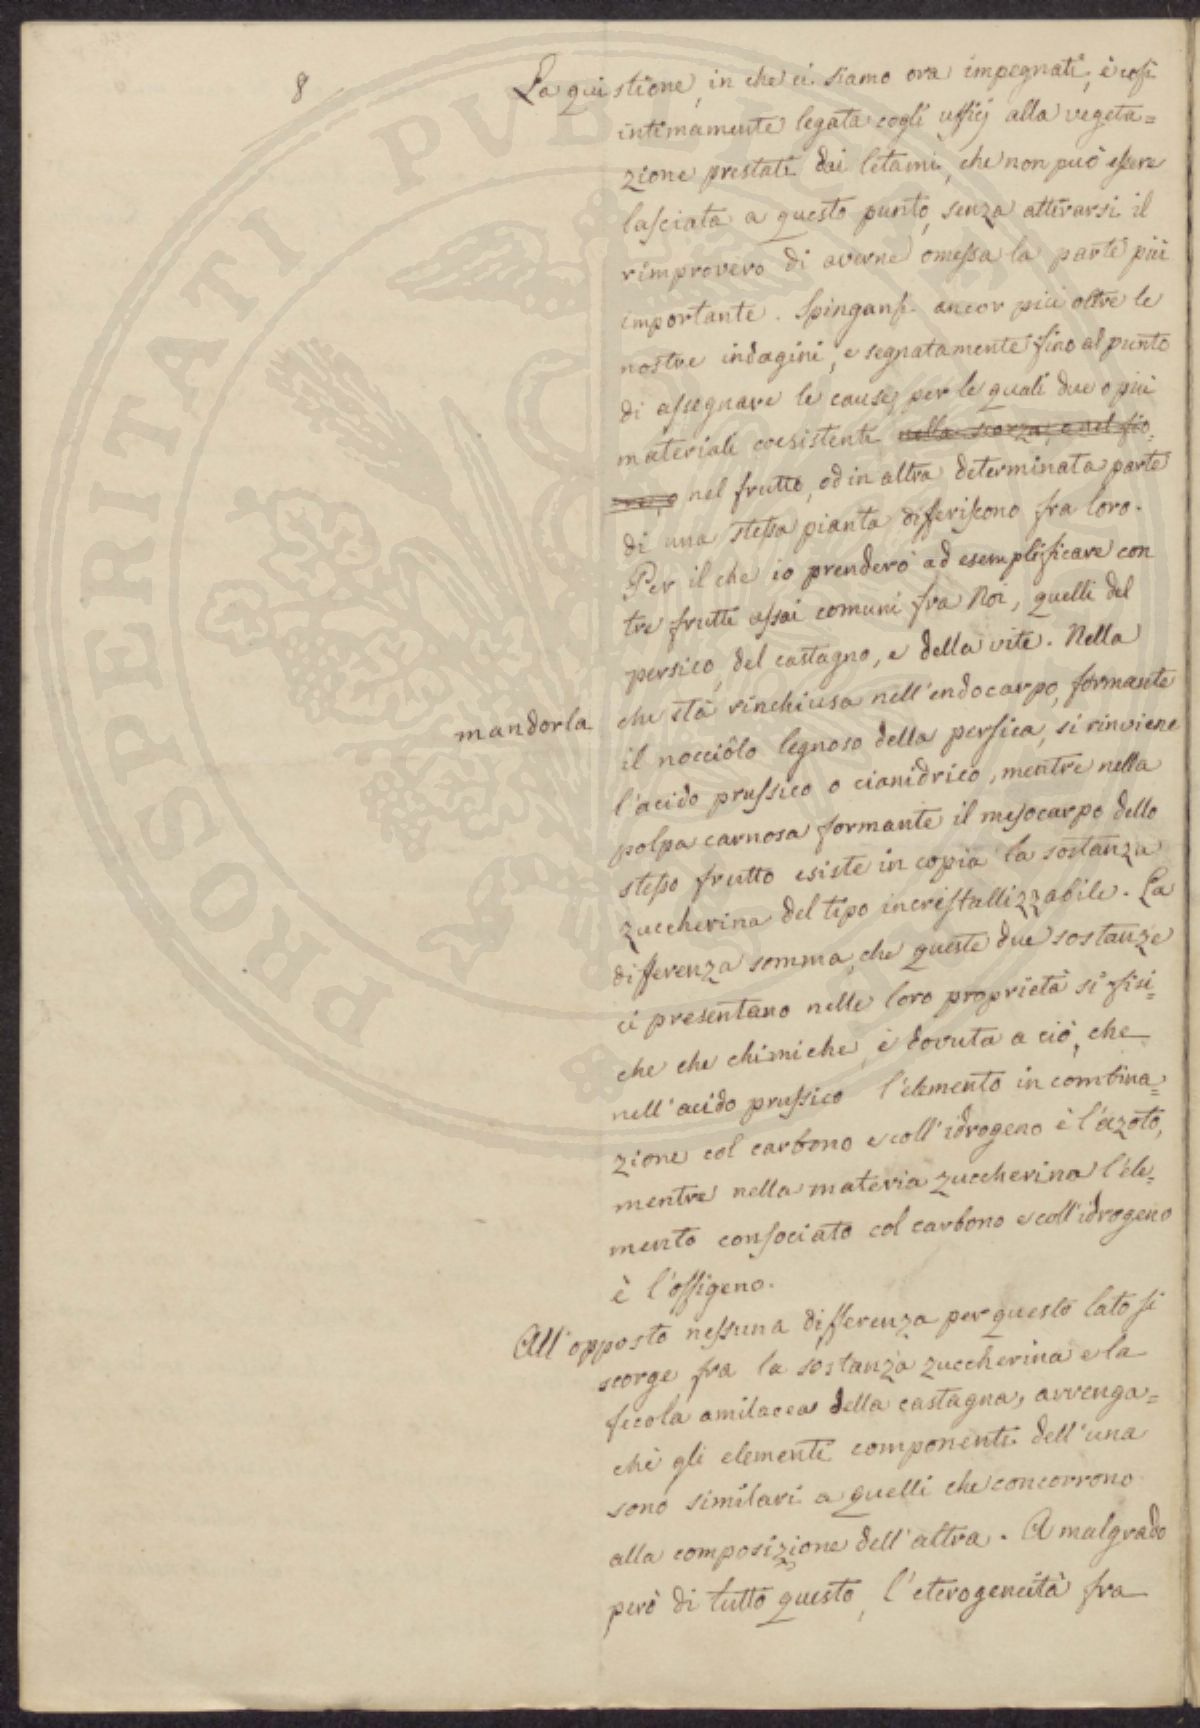 8
La quistione, in che ci siamo ora impegnati, è così
intimamente legata cogli ufficj alla vegeta=
zione prestati dai letami, che non può essere
lasciata a questo punto, senza attirarsi il
rimprovero di averne omessa la parte più
importante. Spingansi ancor più oltre le
nostre indagini, e segnatamente fino al punto
di assegnare le cause, per le quali due o più
materiali coesistenti nella scorza, e nel fio=
re, o nel frutto, od in altra determinata parte
di una stessa pianta differiscono fra loro.
Per il che io prenderò ad esemplificare con
tre frutti assai comuni fra Noi, quelli del
persico, del castagno, e della vite. Nella
mandorla che stà rinchiusa nell'endocarpo, formante
il nocciôlo legnoso della persica, si rinviene
l'acido prussico o cianidrico, mentre nella
polpa carnosa formante il mesocarpo dello
stesso frutto esiste in copia la sostanza
zuccherina del tipo incristallizzabile. La
differenza somma, che queste due sostanze
ci presentano nelle loro proprietà sì fisi=
che che chimiche, è dovuta a ciò, che
nell'acido prussico l'elemento in combina=
zione col carbono e coll'idrogeno è l'azoto,
mentre nella materia zuccherina l'ele=
mento consociato col carbono e coll'idrogeno
è l'ossigeno.
All'opposto nessuna differenza per questo lato si
scorge fra la sostanza zuccherina e la
fecola amilacea della castagna, avvenga=
chè gli elementi componenti dell'una
sono similari a quelli che concorrono
alla composizione dell'altra. A malgrado
però di tutto questo, l'eterogeneità fra
PROSPERITATI PVBLICAE